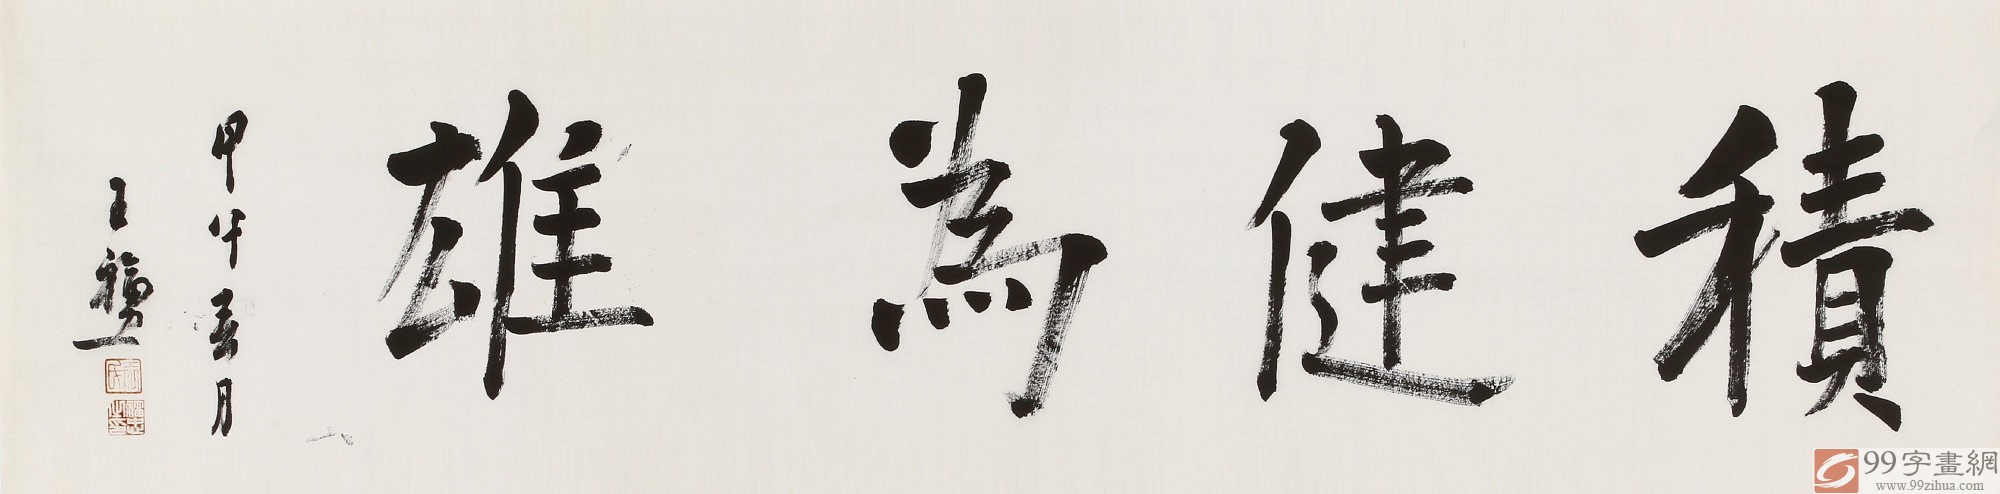 積健為雄
甲午春月
王
99字畫網
www.99zihua.com